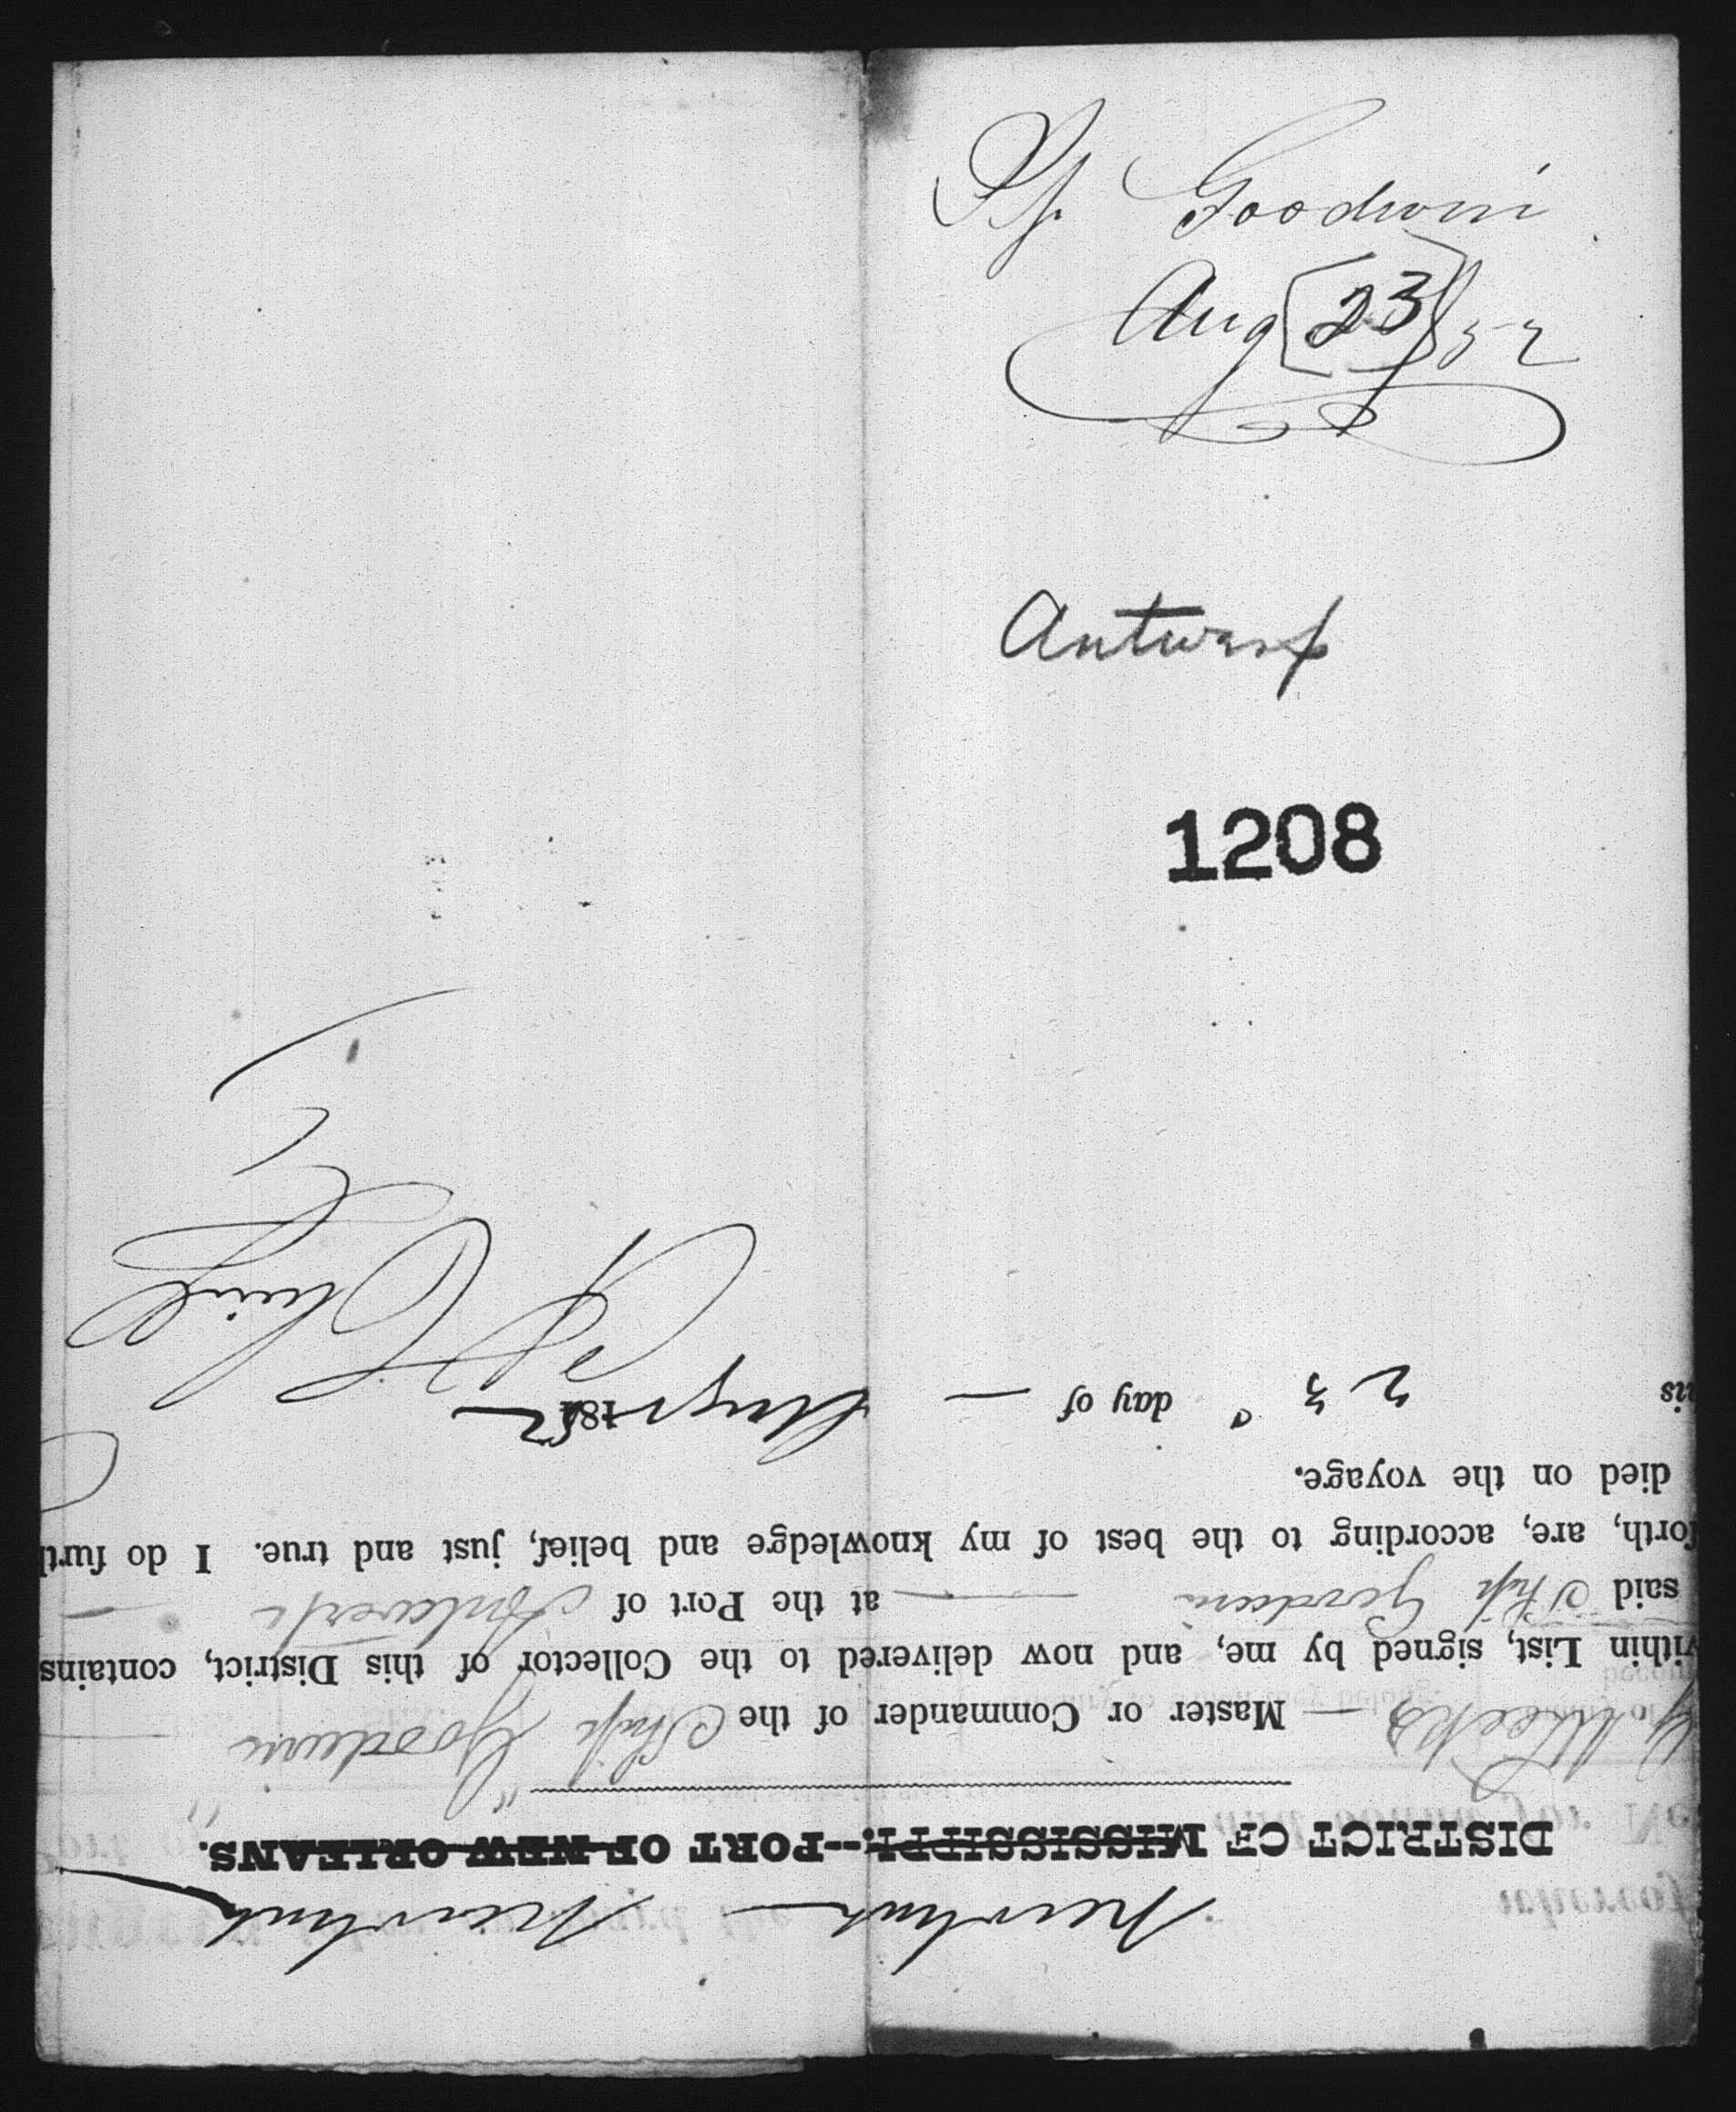 Sp. Goodwin
Aug 23/52
Antwerp
1208
New York — New York
DISTRICT OF MISSISSIPPI.--PORT OF NEW ORLEANS.
Master or Commander of the Ship Goodwin
within List, signed by me, and now delivered to the Collector of this District, contains
said Ship Goodwin — at the Port of Antwerp —
forth, are, according to the best of my knowledge and belief, just and true. I do furth
died on the voyage.
his 23 day of — August 1852